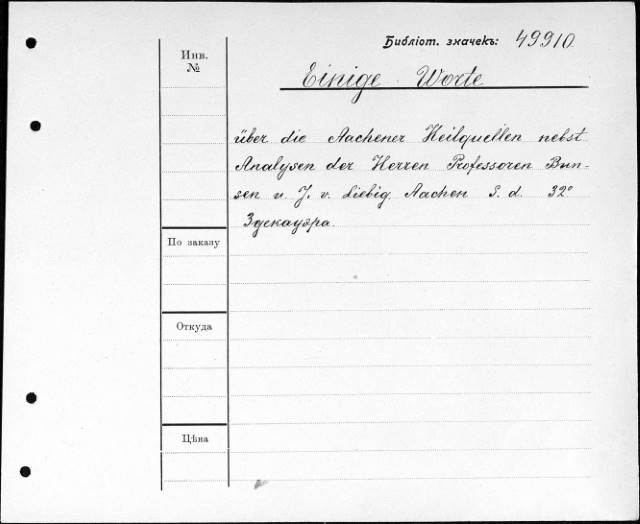 Библіот. значекъ: 49910
Инв.
№
Einige Worte
über die Aachener Heilquellen nebst
Analysen der Herren Professoren Bun-
sen u. J. v. Liebig. Aachen S. d. 32°
Здекауэра.
По заказу
Откуда
Цѣна